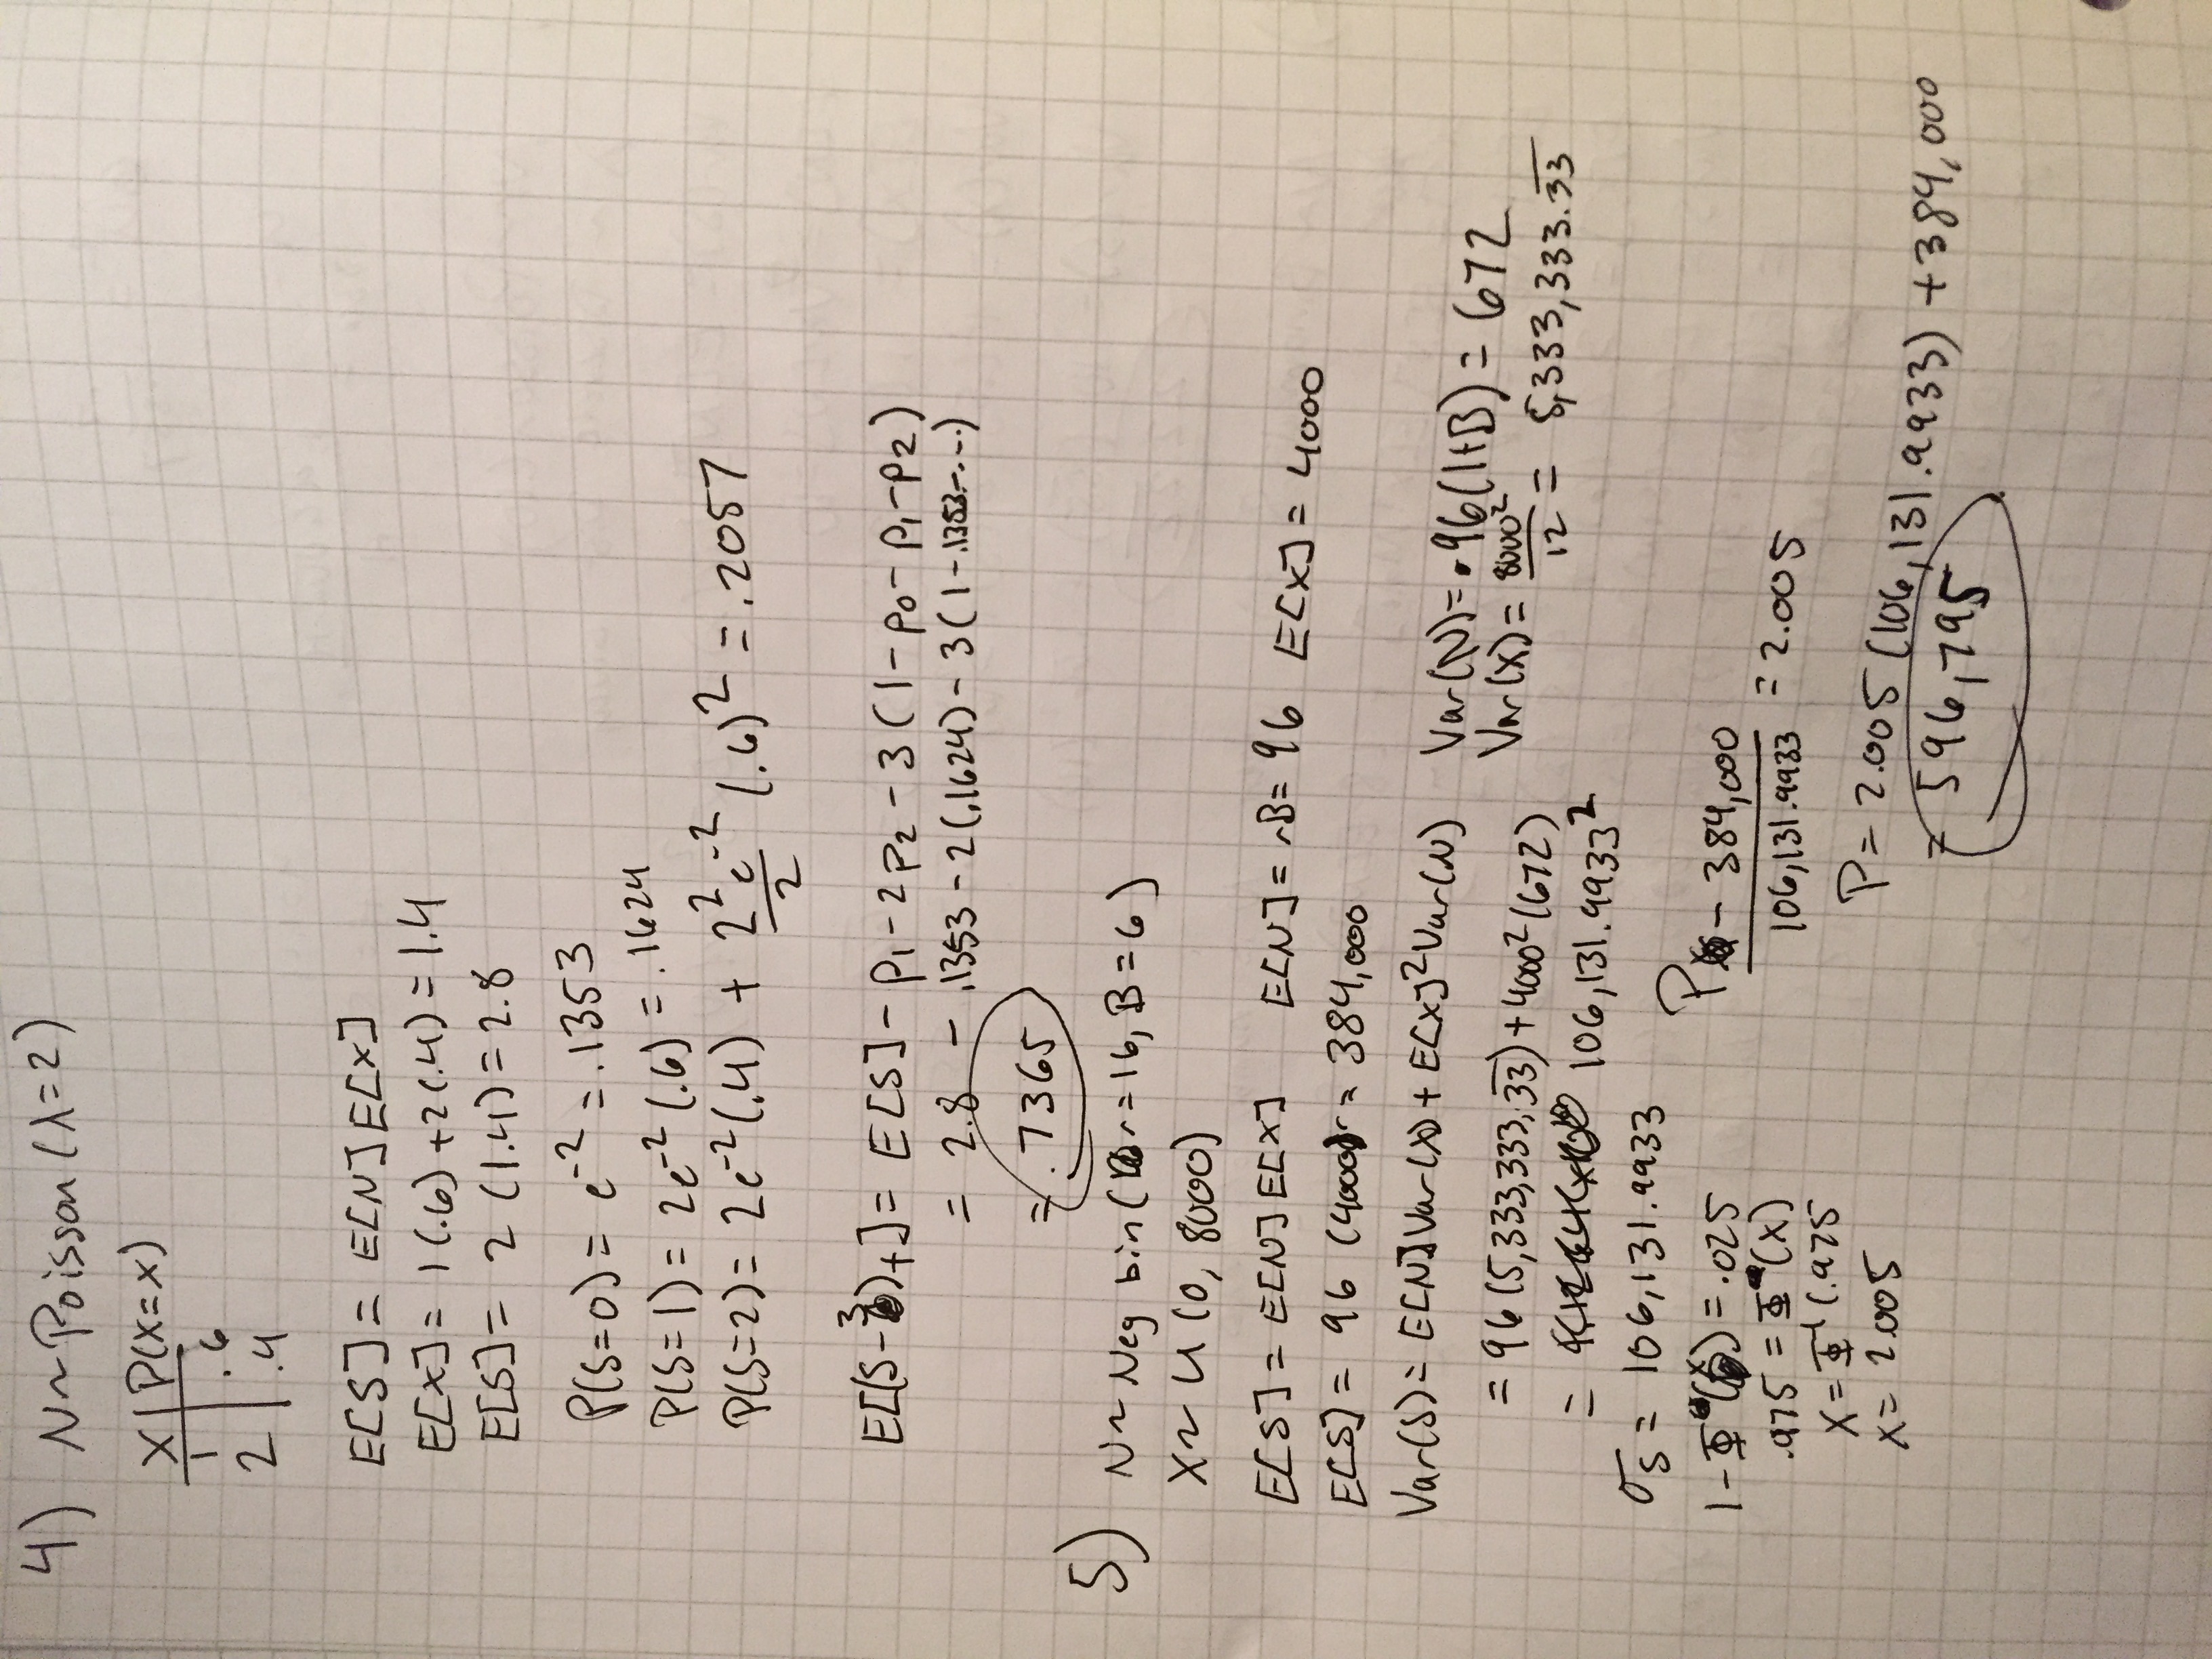 4) N~Poisson(λ=2)
X | P(X=x)
1 | .6
2 | .4
E[S] = E[N]E[X]
E[X] = 1(.6)+2(.4) = 1.4
E[S] = 2 (1.4) = 2.8
P(S=0) = e^-2 = .1353
P(S=1) = 2e^-2 (.6) = .1624
P(S=2) = 2e^-2(.4) + 2^2e^-2/2 (.6)^2 = .2057
E[(S-3)+] = E[S] - p1 - 2p2 - 3(1-p0-p1-p2)
= 2.8 - .1353 - 2(.1624) - 3(1-.1353-...)
= .7365
5) N~Neg bin(r=16, B=6)
X~U(0, 8000)
E[S] = E[N]E[X] E[N] = rB = 96 E[X] = 4000
E[S] = 96 (4000) = 384,000
Var(S) = E[N]Var(X) + E[X]²Var(N) Var(N) = 96(1+B) = 672
= 96(5,333,333.33) + 4000²(672) Var(X) = 8000²/12 = 5,333,333.33
= 106,131.9933²
σS = 106,131.9933
1-Φ(x) = .025
.975 = Φ(x)
x = Φ^-1(.975
x = 2.005
P - 384,000 / 106,131.9933 = 2.005
P = 2.005 (106,131.9933) + 384,000
= 596,795